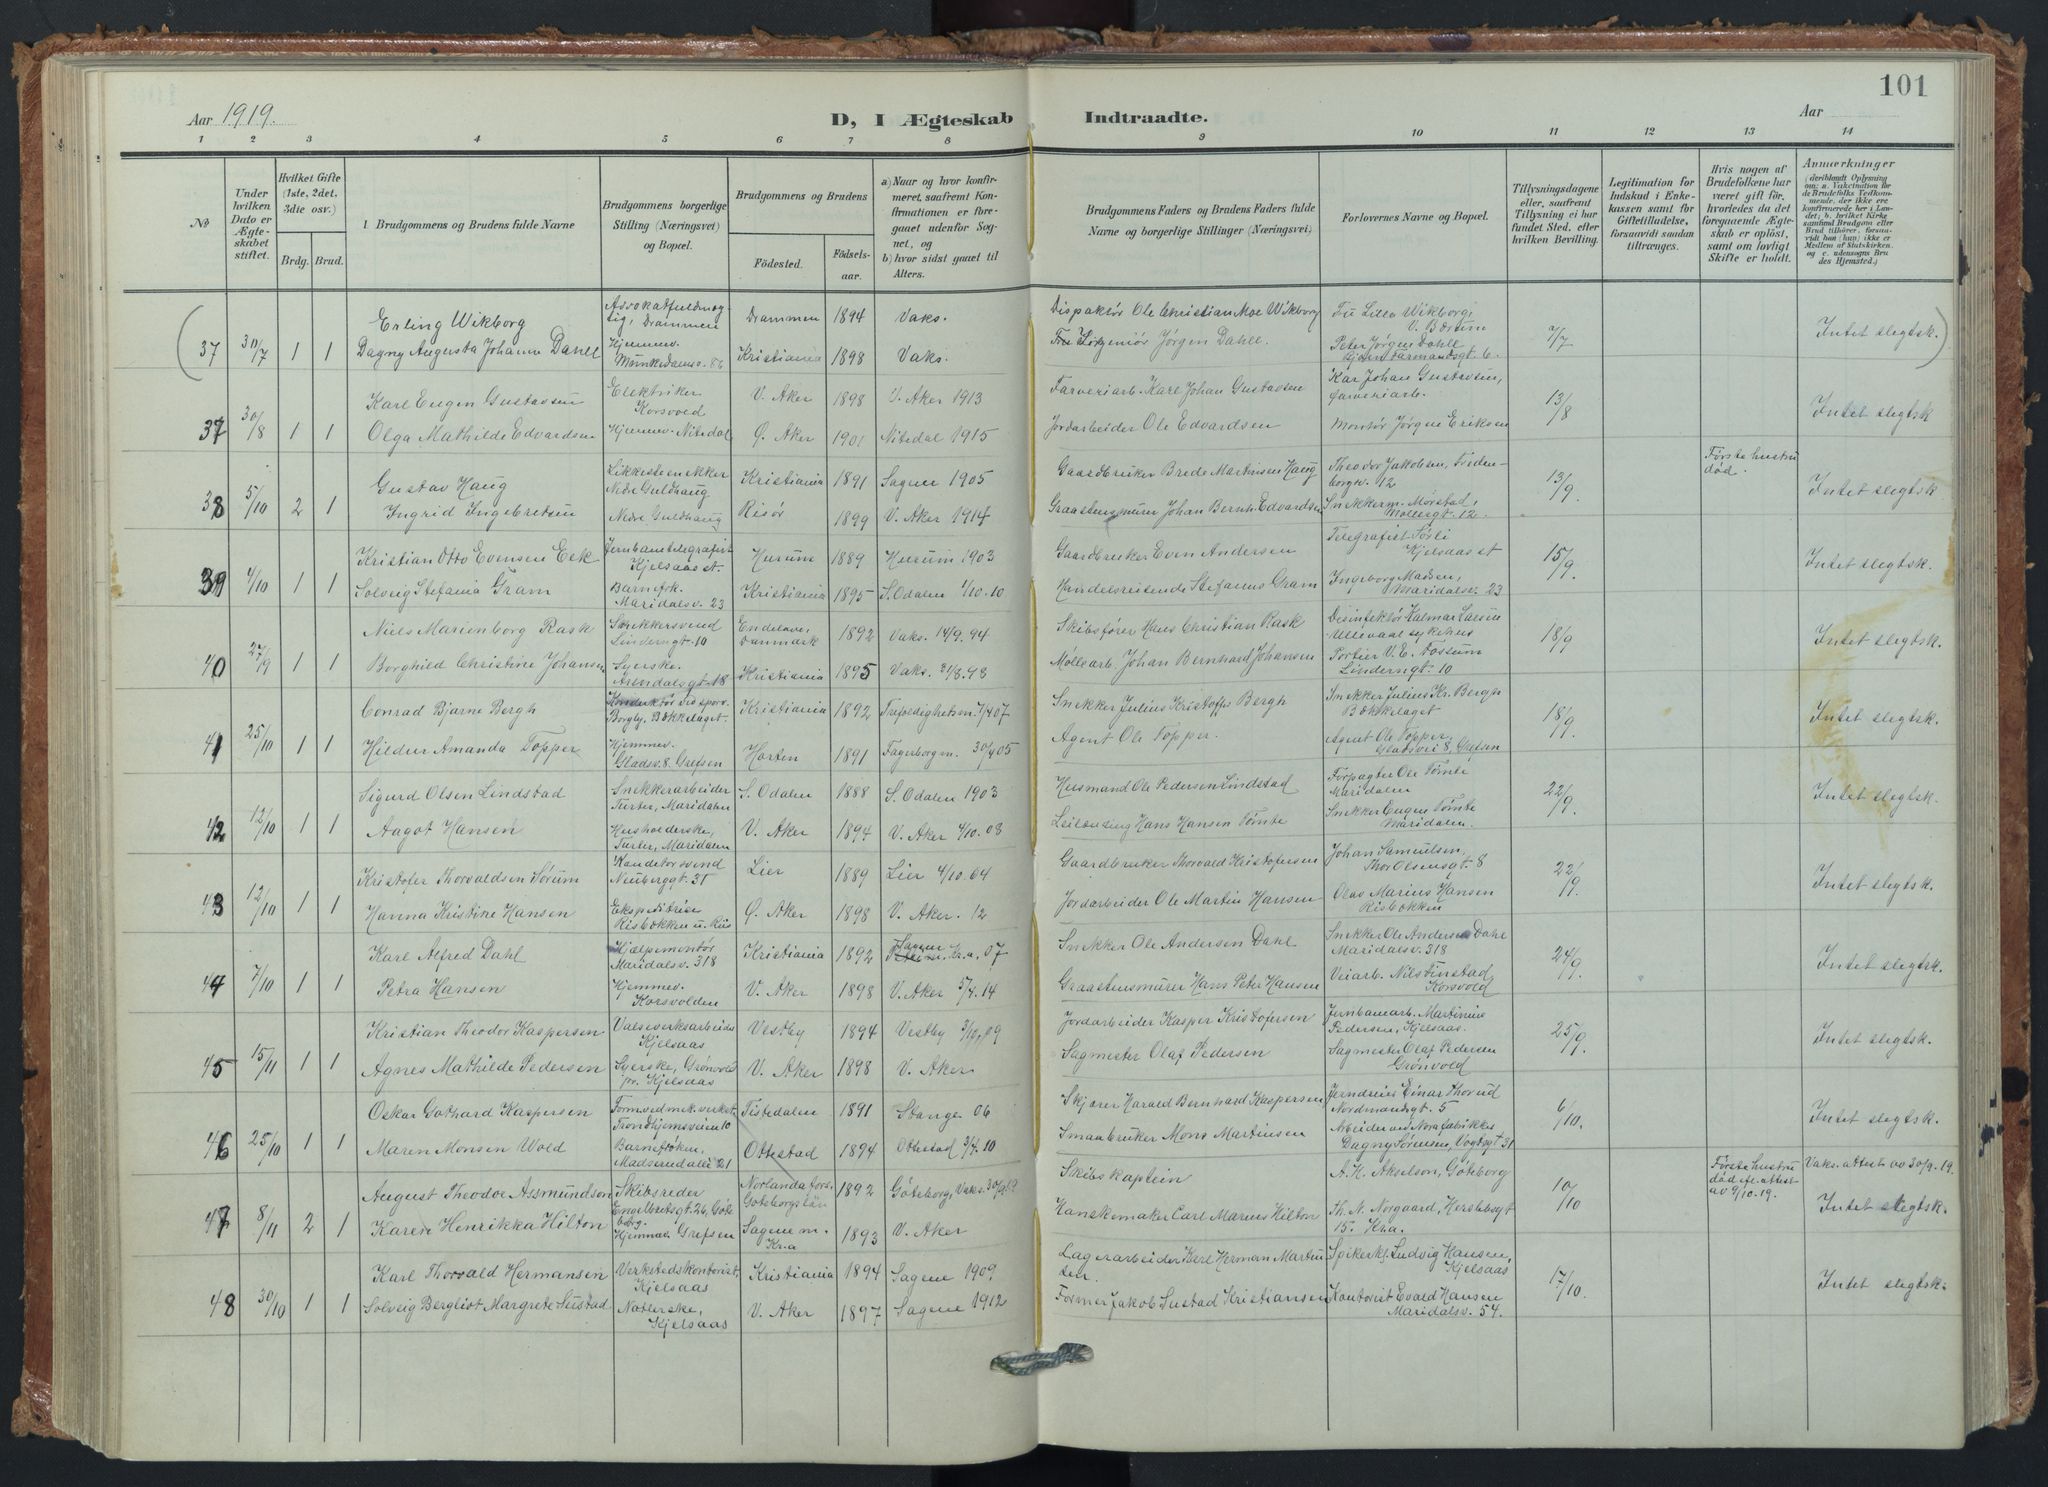 101
Aar 1919.
D, I Ægteskab Indtraadte.
Aar
1 2 3 4 5 6 7 8 9 10 11 12 13 14
No
Under hvilken Dato er Ægteskabet stiftet.
Hvilket Gifte (1ste, 2det, 3die osv.)
Brdg. Brud.
Brudgommens og Brudens fulde Navne
Brudgommens borgerlige Stilling (Næringsvei) og Bopæl.
Brudgommens og Brudens
Fødested. Fødselsaar.
a) Naar og hvor konfirmeret, saafremt Konfirmationen er foregaaet udenfor Sognet, og
b) hvor sidst gaaet til Alters.
Brudgommens Faders og Brudens Faders fulde Navne og borgerlige Stillinger (Næringsvei)
Forlovernes Navne og Bopæl.
Tillysningsdagene eller, saafremt Tillysning ei har fundet Sted, efter hvilken Bevilling.
Legitimation for Indskud i Enkekassen samt for Giftetilladelse, forsaavidt saadan tiltrænges.
Hvis nogen af Brudefolkene har været gift før, hvorledes da det foregaaende Ægteskab er opløst, samt om lovligt Skifte er holdt.
Anmærkninger
(deriblandt Oplysning om: a. Vakcination for de Brudefolks Vedkommende, der ikke ere konfirmerede her i Landet; b. hvilket Kirkesamfund Brudgom eller Brud tilhører, forsaavidt han (hun) ikke er Medlem af Statskirken, og c. udensogns Brudes Hjemsted.)
Erling Wikborg Advokatfuldmægtig, Drammen Drammen 1894 Vaks. Dispaktør Ole Christian Moe Wikborg Frk Lilla Wikborg, V. Bærum
(37 30/7 1 1 Dagny Augusta Johanne Dahll Hjemmev. Munkedamsv. 86 Kristiania 1898 Vaks. Ingeniør Jørgen Dahll. Peter Jørgen Dahll 7/7 Intet slegtsk.)
Karl Eugen Gustavsen Elektriker Korsvold V. Aker 1898 V. Aker 1913 Farveriarb. Karl Johan Gustavsen Kar Johan Gustavsen, farveriarb.
37 30/8 1 1 Olga Mathilde Edvardsen Hjemmev. Nitedal Ø. Aker 1901 Nitedal 1915 Jordarbeider Ole Edvardsen Montør Jørgen Eriksen 13/8 Intet slegtsk
Gustav Haug Likkistesnekker Nedre Guldhaug Kristiania 1891 Sagene 1905 Gaardbruker Brede Martinsen Haug Theodor Jakobsen, Fredenborgv. 12 Første hustru død.
38 5/10 2 1 Ingrid Ingebretsen Nedre Guldhaug Risør 1899 V. Aker 1914 Graastensmurer Johan Bernh. Edvardsen Snekkerm. Mørstad, Møllergt. 12. 13/9. Intet slegtsk
Kristian Otto Evensen Eek Jernbanetelegrafist Kjelsaas st. Hurum 1889 Hurum 1903 Gaardbruker Even Andersen Telegrafist Tøsli Kjelsaas st
39 4/10 1 1 Solveig Stefania Gram Barnefrk. Maridalsv. 23 Kristiania 1895 S. Odalen 4/10.10 Handelsreisende Stefanus Gram Ingeborg Madsen, Maridalsv. 23 15/9. Intet slegtsk.
Niels Marienborg Rask Snekkersvend Linderngt. 10 Endelave, Danmark 1892 Vaks. 14/9.94 Skibsfører Hans Christian Rask Desinfektør Valmar Larsen Ullevaal sykehus
40 27/9 1 1 Borghild Christine Johansen Syerske. Arendalsgt. 18 Kristiania 1895 Vaks. 21/8.98 Møllearb. Johan Bernhard Johansen Portier V. E. Fossum Linderngt. 10 18/9 Intet slegtsk.
Conrad Bjarne Bergh Konduktør v. sporv. Borgly, Bækkelaget. Kristiania 1892 Trefoldighetsm. 7/4 07 Snekker Julius Kristoffs Bergh Snekker Julius Kr. Bergh Bækkelaget
41 25/10 1 1 Hildur Amanda Topper Hjemmev. Gladsv. 8. Grefsen Horten 1891 Fagerborg m. 30/4 05 Agent Ole Topper. Agent Ole Topper, Gladsvei 8, Grefsen 18/9. Intet slegtsk.
Sigurd Olsen Lindstad Snekkerarbeider Turter, Maridalen S. Odalen 1888 S. Odalen 1903 Husmand Ole Pedersen Lindstad Forpagter Ole Tømte Maridalen
42 12/10 1 1 Aagot Hansen Husholderske, Turter, Maridalen V. Aker 1894 V. Aker 4/10.08 Leilænding Hans Hansen Tømte Snekker Eugen Tømte Maridalen. 22/9. Intet slegtsk.
Kristofer Thorvaldsen Sørum Kandetørsvend Neuberggt. 31 Lier 1889 Lier 4/10.04 Gaardbruker Thorvald Kristofersen Johan Samuelsen, Thor Olsensgt. 8
43 12/10 1 1 Hanna Kristine Hansen Ekspeditrise Risbækken u. Riis Ø. Aker 1898 V. Aker. 12 Jordarbeider Ole Martin Hansen Olav Marius Hansen Risbækken 22/9. Intet slegtsk.
Karl Alfred Dahl Hjælpemontør Maridalsv. 318 Kristiania 1892 Sagene Kr.a, 07 Snekker Ole Andersen Dahl Snekker Ole Andersen Dahl Maridalsv. 318
44 7/10 1 1 Petra Hansen Hjemmev. Korsvolden V. Aker 1898 V. Aker 5/4.14 Graastensmurer Hans Peter Hansen Veiarb. Nils Finstad Korsvold 24/9. Intet slegtsk.
Kristian Theodor Kaspersen Valseverksarbeider Kjelsaas Vestby 1894 Vestby 3/10, 09 Jordarbeider Kasper Kristofersen Jernbanearb. Martinius Pedersen, Kjelsaas.
45 15/11 1 1 Agnes Mathilde Pedersen Syerske, Grønvold pr. Kjelsaas V. Aker 1898 V. Aker Sagmester Olaf Pedersen Sagmester Olaf Pedersen Grønvold 25/9. Intet slegtsk.
Oskar Gothard Kaspersen Formv. ved mek. verkst. Trondhjemsveien 10 Tistedalen 1891 Stange 06 Skjærer Harald Bernhard Kaspersen Jerndreier Einar Thorud Nordmandsgt. 5
46 25/10 1 1 Maren Monsen Wold Barnefrøken, Madserudallé 21 Ottestad 1894 Ottestad 3/4.10 Smaabruker Mons Martinsen Arbeider ved Nora fabrikker Dagny Sørensen, Vogtsgt 31 6/10. Intet slegtsk.
August Theodor Assmundson Skibsreder Engelbrektsgt. 26, Göteborg 1892 Göteborg, Vaks. 30/9.19 Skibskaptein A. H. Akselson, Göteborg Første hustru død efl. attest av 9/10.19. Vaks. attest av 30/9.19.
47 8/11 2 1 Karen Henrikka Hilton Hjemmev. Grefsen Sagene m. Kr.a 1893 V. Aker Hanskemaker Carl Marius Hilton Th. N. Norgaard, Herslebsgt 15. Kra. 10/10 Intet slegtsk.
Karl Thorvald Hermansen Verkstedskontorist, Kjelsaas Kristiania 1894 Sagene 1909 Lagerarbeider Karl Herman Martinsen. Spikerkl. Ludvig Hansen, Kjelsaas
48 30/10 1 1 Solveig Bergliot Margrete Sustad Notlerske, Kjelsaas V. Aker 1897 Sagene 1912 Former Jakob Sustad Kristiansen Kontorist Evald Hansen Maridalsv. 54. 17/10. Intet slegtsk.